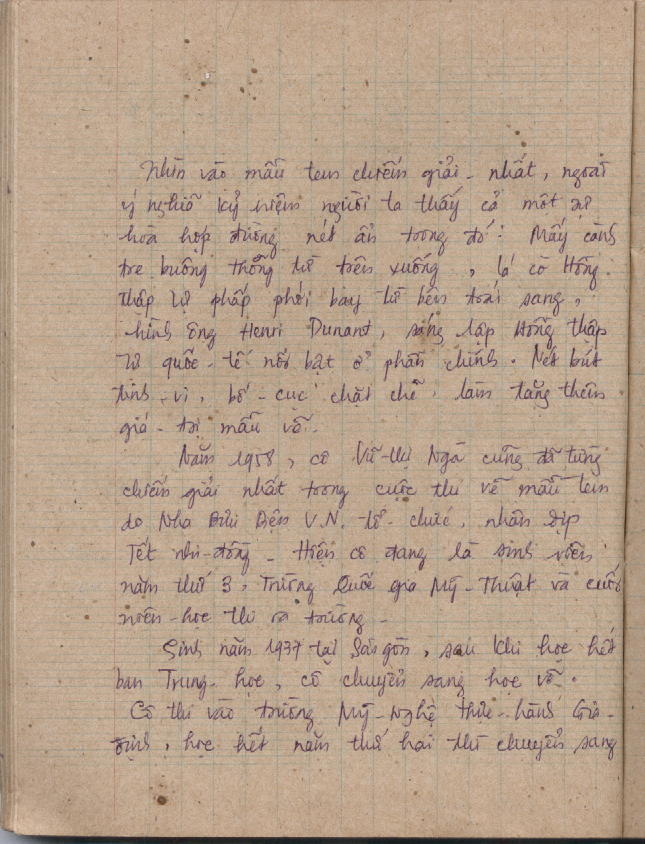 Nhìn vào mẫu tem chiếm giải-nhất, ngoài
ý nghĩa kỷ niệm người ta thấy cả một sự
hoà hợp đường nét ẩn trong đó: Mấy cành
tre buông thõng từ trên xuống, lá cờ Hồng
thập tự phấp phới bay từ bên trái sang,
hình ông Henri Dunant, sáng lập Hồng thập
tự quốc-tế nổi bật ở phần chính. Nét bút
tinh-vi, bố-cục chặt chẽ, làm tăng thêm
giá-trị mẫu vẽ.
Năm 1958, cô Vũ-thị Ngà cũng đã từng
chiếm giải nhất trong cuộc thi vẽ mẫu tem
do Nha Bưu Điện V.N. tổ-chức, nhân dịp
Tết nhi-đồng. Hiện cô đang là sinh viên
năm thứ 3, Trường Quốc gia Mỹ-Thuật và cuối
niên-học thi ra trường.
Sinh năm 1937 tại Sài gòn, sau khi học hết
ban Trung-học, cô chuyển sang học vẽ.
Cô thi vào trường Mỹ-Nghệ thực-hành Gia-
định, học hết năm thứ hai thì chuyển sang